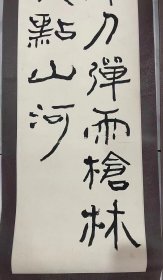 刀彈雨槍林
點山河